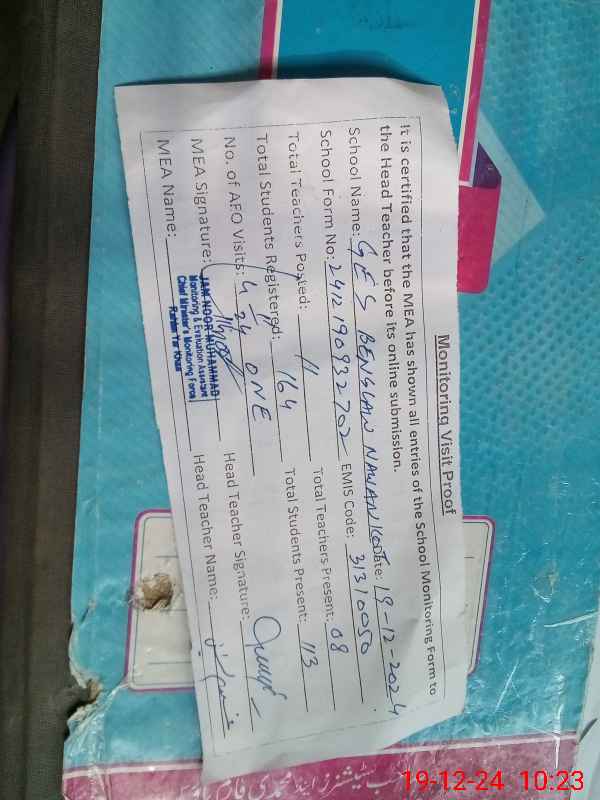 Monitoring Visit Proof
It is certified that the MEA has shown all entries of the School Monitoring Form to
the Head Teacher before its online submission.
School Name: GES BENGLAW NAWAN KOT Date: 19-12-2024
School Form No: 2412190932702 EMIS Code: 31310050
Total Teachers Posted: 11 Total Teachers Present: 08
Total Students Registered: 164 Total Students Present: 113
No. of AEO Visits: 4-24 ONE Head Teacher Signature:
MEA Signature: Head Teacher Name:
JAM NOOR MUHAMMAD
Monitoring & Evaluation Assistant
Chief Minister's Monitoring Force
Rahim Yar Khan
MEA Name:
19-12-24 10:23